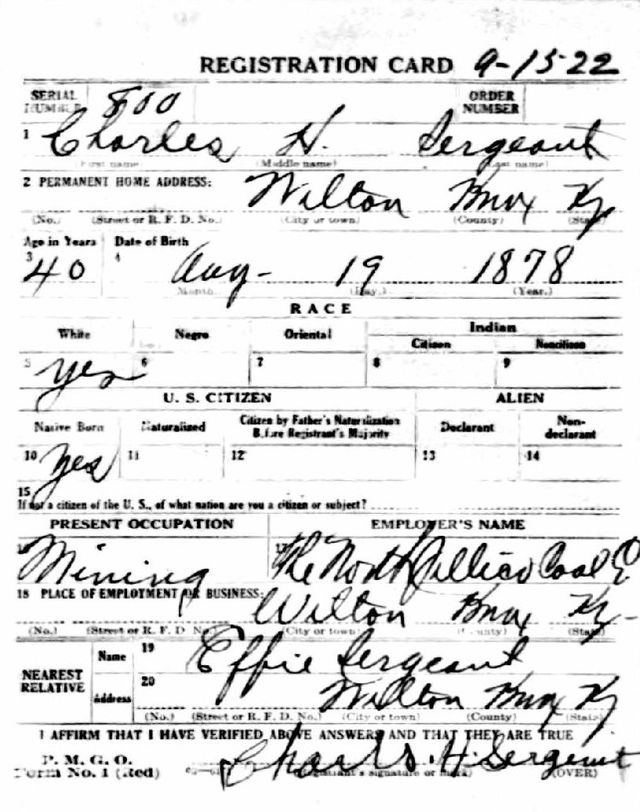 REGISTRATION CARD 9-15-22
SERIAL NUMBER 800 ORDER NUMBER
1 Charles H. Sergeant
(First name) (Middle name) (Last name)
2 PERMANENT HOME ADDRESS: Wilton Knox Ky
(No.) (Street or R. F. D. No.) (City or town) (County) (State)
Age in Years Date of Birth
3 40 4 Aug- 19 1878
Month. (Day.) (Year.)
RACE
White Negro Oriental Indian
Citizen Noncitizen
5 yes 6 7 8 9
U. S. CITIZEN ALIEN
Native Born Naturalized Citizen by Father's Naturalization Before Registrant's Majority Declarant Non-declarant
10 yes 11 12 13 14
15
If not a citizen of the U. S., of what nation are you a citizen or subject?
PRESENT OCCUPATION EMPLOYER'S NAME
Mining The North Jellico Coal
18 PLACE OF EMPLOYMENT OR BUSINESS: Wilton Knox Ky-
(No.) (Street or R. F. D No.) (City or town) (County) (State)
NEAREST RELATIVE
Name 19 Effie Sergeant
Address 20 Wilton Knox Ky
(No.) (Street or R. F. D. No.) (City or town) (County) (State)
I AFFIRM THAT I HAVE VERIFIED ABOVE ANSWERS AND THAT THEY ARE TRUE
P. M. G. O.
Form No. 1 (Red) Charls H. Sergeint
(Registrant's signature or mark) (OVER)